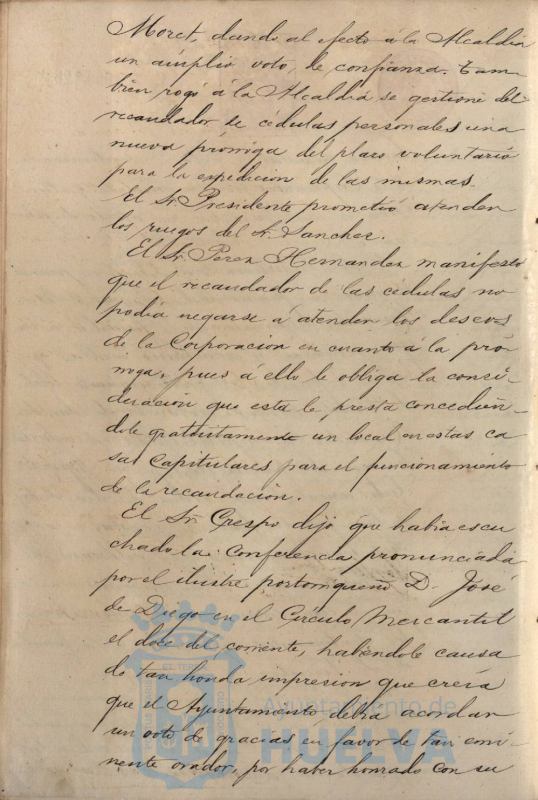 Moret, dando al efecto á la Alcaldia
un amplio voto, de confianza. Tam-
bien rogó á la Alcaldia se gestione del
recaudador de cédulas personales una
nueva prórroga del plazo voluntario
para la expedicion de las mismas.
El Sr. Presidente prometió atender
los ruegos del Sr. Sanchez.
El Sr. Perez Hernandez manifestó
que el recaudador de las cedulas no
podia negarse á atender los deseos
de la Corporacion en cuanto á la pró-
rroga, pues á ello le obliga la consi-
deracion que esta le presta concedien-
dole gratuitamente un local en estas ca
sas Capitulares para el funcionamiento
de la recaudacion.
El Sr. Crespo dijo que habia escu
chado la Conferencia pronunciada
por el ilustre portorriqueño D. José
de Diego en el Círculo Mercantil
el doce del corriente, habiendole causa
do tan honda impresion que creía
que el Ayuntamiento debia acordar
un voto de gracias en favor de tan emi-
nente orador, por haber honrado con su
Ayuntamiento de
HUELVA